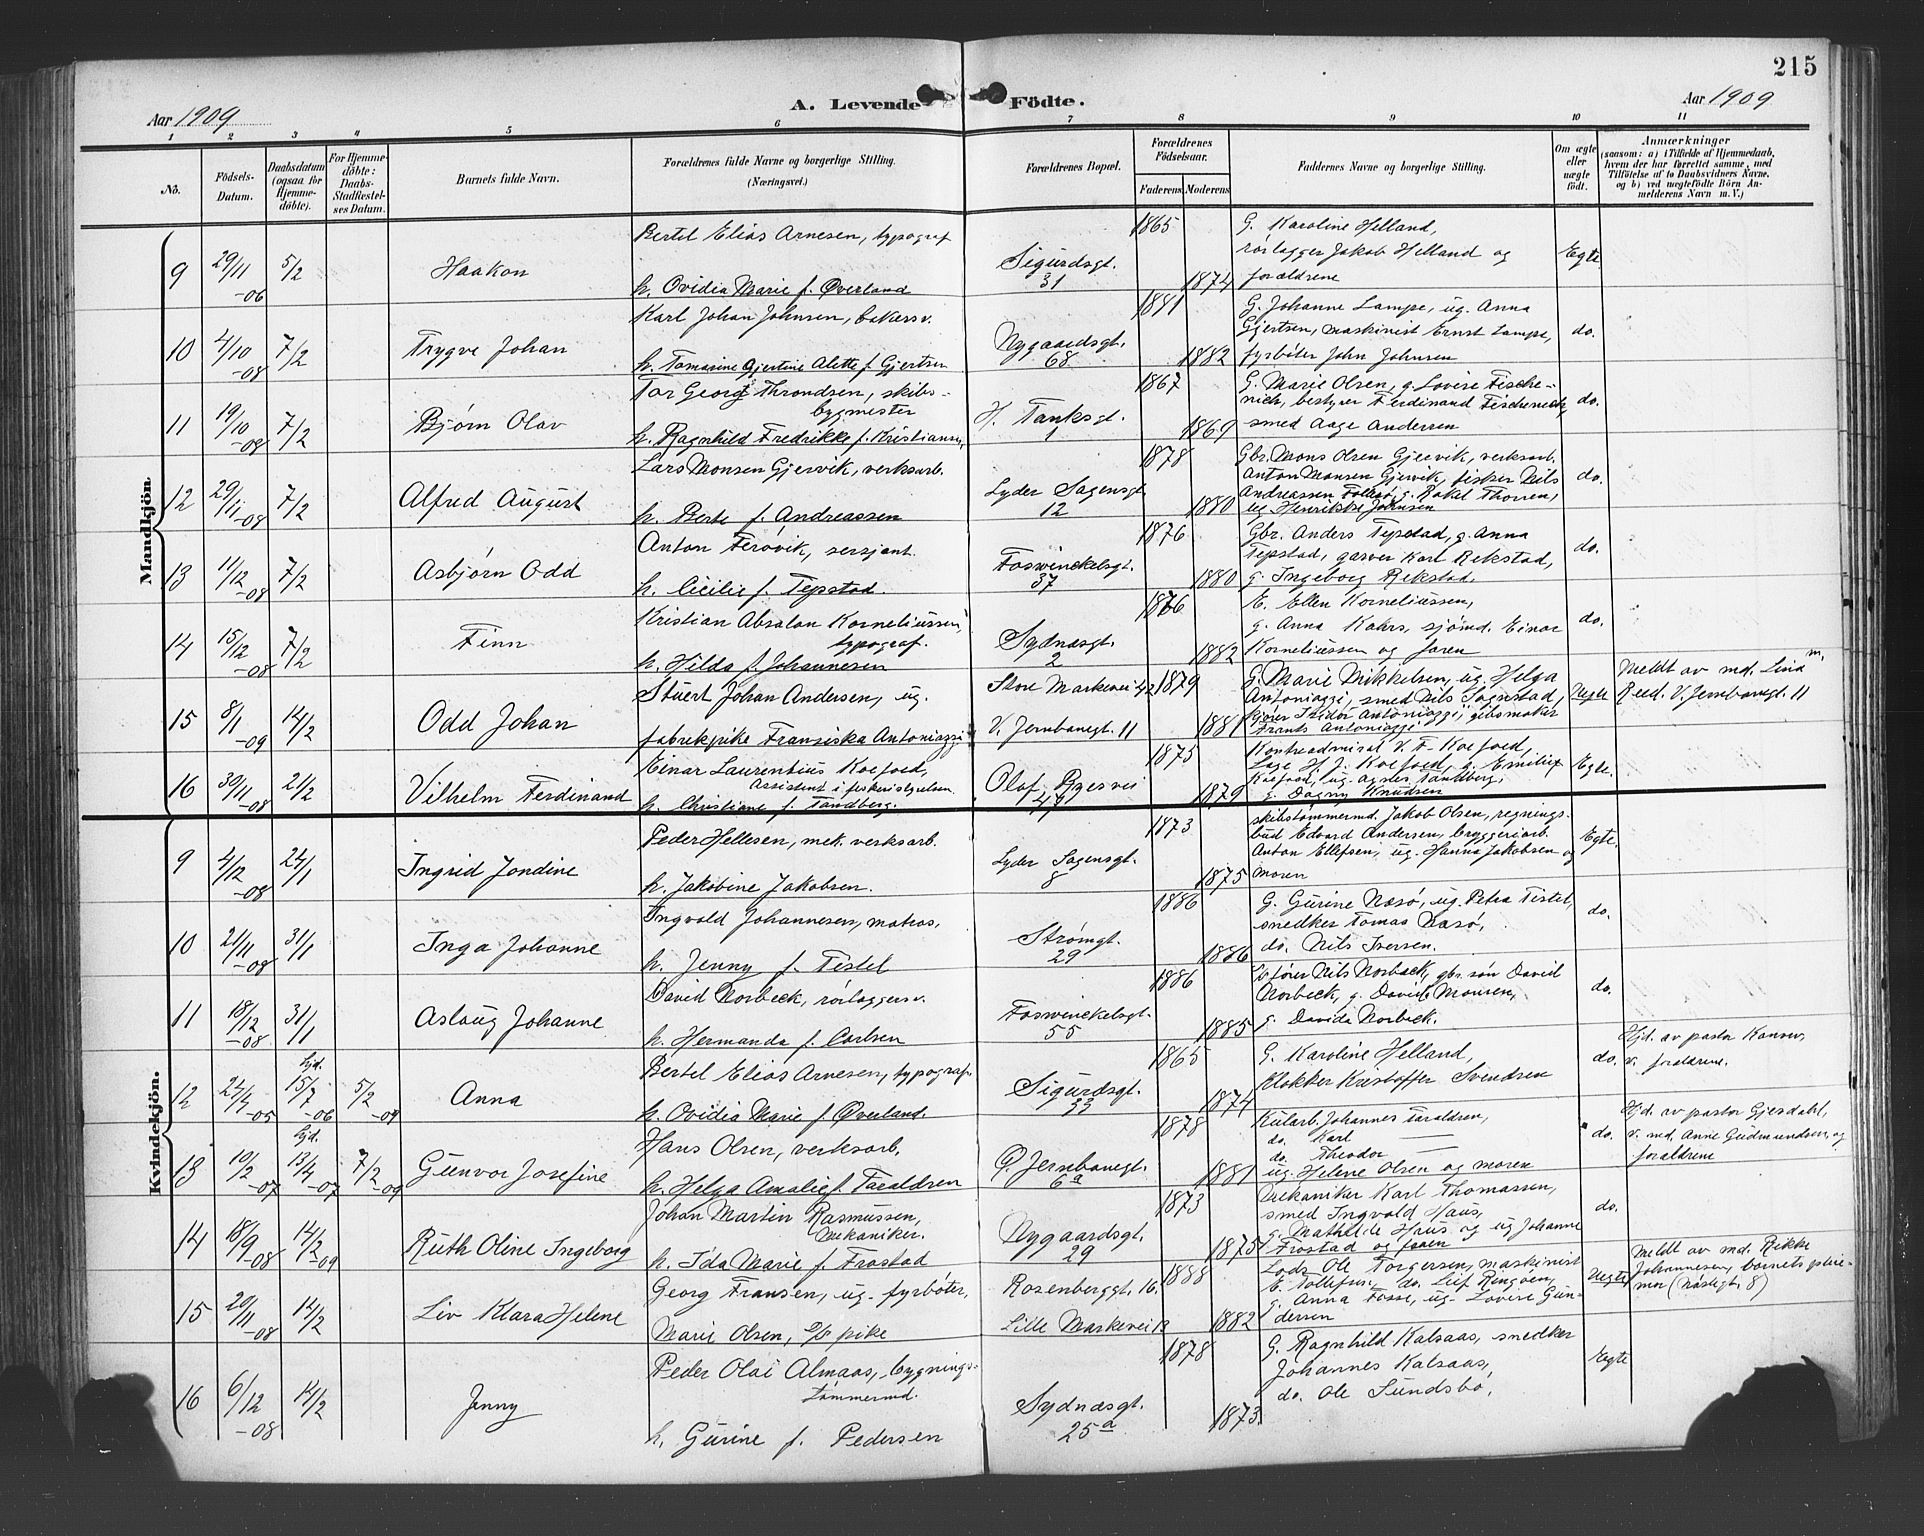 215
Aar 1909
A. Levende Födte.
Aar 1909
1 2 3 4 5 6 7 8 9 10 11
No.
Födsels-Datum.
Daabsdatum (ogsaa for Hjemme-döbte).
For Hjemme-döbte: Daabs-Stadfæstel-ses Datum.
Barnets fulde Navn.
Forældrenes fulde Navne og borgerlige Stilling.
(Næringsvei.)
Forældrenes Bopæl.
Forældrenes Födselsaar.
Faderens Moderens
Faddernes Navne og borgerlige Stilling.
Om ægte eller uægte födt.
Anmærkninger
(saasom: a) i Tilfælde af Hjemmedaab, hvem der har forrettet samme, med Tilföielse af to Daabsvidners Navne. og b) ved uægtefödte Börn Anmelderens Navn m. V.)
Mandkjön.
9 29/11 -06 5/2 Haakon
Bertel Elias Arnesen, typograf
h. Ovidia Marie f. Øverland
Sigurdsgt. 31
1865 1874
G. Karoline Helland,
rörlagger Jakob Helland og
forældrene
Egte.
10 4/10 -08 7/2 Trygve Johan
Karl Johan Johnsen, bakersv.
h. Tomasine Gjertine Alette f. Gjertsen
Nygaardsgt. 68
1881 1882
G. Johanne Lampe, ug. Anna
Gjertsen, maskinist Ernst Lampe,
fyrböter John Johnsen
do.
11 19/10 -08 7/2 Bjørn Olav
Tor Georg Throndsen, skibs-
bygmester
h. Ragnhild Fredrikke f. Kristiansen
H. Tanksgt. 1
1867 1869
G. Marie Olsen, g. Lovise Fische-
nich, bestyrer Ferdinand Fischenich,
smed Aage Andersen
do.
12 29/11 -08 7/2 Alfred August
Lars Monsen Gjervik, verksarb.
h. Berte f. Andreassen
Lyder Sagensgt. 12
1878 1880
Gbr. Mons Olsen Gjervik, verksarb.
Anton Monsen Gjervik, fisker Nils
Andreassen, g. Rakel Thorsen,
ug. Henrikke Johnsen
do.
13 11/12 -08 7/2 Asbjørn Odd
Anton Ferövik, sersjant.
h. Cicilie f. Tepstad.
Fosswinckelsgt. 37
1876 1880
Gbr. Anders Tepstad, g. Anna
Tepstad, garver Karl Rekstad,
g. Ingeborg Rekstad.
do.
14 15/12 -08 7/2 Finn
Kristian Absalon Korneliussen,
typograf.
h. Hilda f. Johannesen
Sydnæsgt. 2
1876 1882
E. Ellen Korneliussen,
g. Anna Kahrs, sjömd. Einar
Korneliussen og faren
do.
15 8/1 -09 14/2 Odd Johan
Stuert Johan Andersen, ug.
fabrekpike Fransiska Antoniazzi
Store Markevei 42
V. Jernbanegt. 11
1879 1881
G. Marie Mikkelsen, ug. Helga
Antoniazzi, smed Nils Sognstad,
Isidor Antoniazzi, gibsmaker
Frants Antoniazzi
Uegte
Meldt av md. Lina
Reed. V. Jernbanegt. 11
16 30/11 -08 21/2 Vilhelm Ferdinand
Einar Laurentius Koefoed,
Assistent i fiskeristyrelsen
h. Christiane f. Tandberg.
Olaf Ryesvei 47
1875 1879
Kontreadmiral V. F. Koefoed,
Læge H. J. Koefoed, g. Emilie
Koefoed, ug. Agnes Tandberg,
g. Dagny Knudsen
Egte.
Kvindekjön.
9 4/12 -08 24/1 Ingrid Jondine
Peder Hellesen, mek. verksarb.
h. Jakobine Jakobsen.
Lyder Sagensgt. 8
1873 1875
Skibstömmermd. Jakob Olsen, regnings-
bud Edvard Andersen, bryggeriarb.
Anton Ellefsen, ug. Hanna Jakobsen og
moren
Egte.
10 21/11 -08 31/1 Inga Johanne
Ingvald Johannesen, matros,
h. Jenny f. Tistel
Strömgt. 29
1886 1886
G. Gurine Næsø, ug. Petra Tistel,
snedker Tomas Næsø,
do. Nils Iversen.
do.
11 18/12 -08 31/1 Aslaug Johanne
David Norbeck, rörlæggersv.
h. Hermanda f. Carlsen
Fosswinckelsgt. 55
1886 1885
Nils Norbeck, gbr. sön David
Norbeck, g. Davida Monsen,
g. Davida Norbeck.
do.
12 24/4 -05 Hjd. 15/7 -06 5/2 -09 Anna
Bertel Elias Arnesen, typograf.
h. Ovidia Marie f. Øverland.
Sigurdsgt. 33
1865 1874
G. Karoline Helland,
Klokker Kristoffer Svendsen
do.
Hjd. av pastor Konow,
v. forældrene.
13 10/2 -07 Hjd. 13/4 -07 7/2 -09 Gunvor Josefine
Hans Olsen, verksarb.
h. Helga Amalie f. Taraldsen
Ö. Jernbanegt. 6a
1878 1881
Kularb. Johannes Taraldsen,
do. Karl —
do. Theodor —
ug. Helene Olsen og moren
do.
Hjd. av pastor Gjesdahl,
v. md. Anne Gudmundsen og
forældrene
14 18/9 -08 14/2 -09 Ruth Oline Ingeborg
Johan Martin Rasmussen,
mekaniker.
h. Ida Marie f. Frostad
Nygaardsgt. 29
1873 1875
Mekaniker Karl Thomassen,
smed Ingvald Haus,
g. Mathilde Haus og ug Johanne
Frostad og faren
do.
15 20/11 -08 14/2 Liv Klara Helene
Georg Fransen, ug. fyrböter,
Marie Olsen, pike
Rosenberggt. 16.
Lille Markevei 13
1888 1882
Lods Ole Torgersen, maskinist
E. Tollefsen, do. Leif Ringöen,
g. Anna Fosse, ug. Lovise Gun-
dersen
Uegte
Meldt av md. Rikke
Johannesen, barnets pleie-
mor (Nöstegt. 8)
16 6/12 -08 14/2 Jenny
Peder Olai Almaas, bygnings-
tömmermd.
h. Gurine f. Pedersen
Sydnæsgt. 25a
1878 1873.
G. Ragnhild Kalsaas, snedker
Johannes Kalsaas,
do. Ole Sundsbö,
Egte